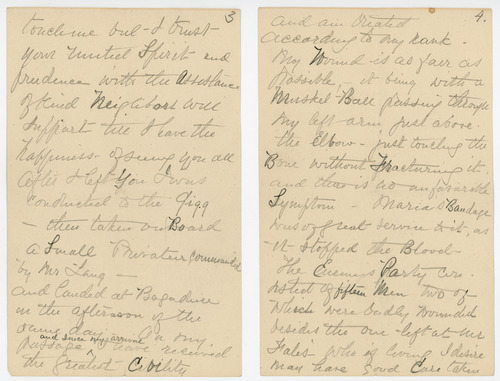 3
touch me but - I trust -
your United Spirit and
prudence with the Assistance
of kind Neighbors will
support - till I have the
happiness - of seeing you all
After I left You I was
conducted to the Gigg
- then taken on Board
a Small Privateer commanded
by Mr Long -
and landed at Bagaduce
in the afternoon of the
same day - On my
passage and since my arrival have received
the Greatest Civility
4.
and am treated
according to my rank.
My Wound is as fair as
Possible, - it being with a
Muskel-Ball passing through
My left arm just above.
the Elbow - just touching the
Bone without Fracturing it.
and there is no unfavorable
Symptom - Maria's Bandage
was of great service to it, as
it stopped the Blood -
The Enemys Party con-
sisted of fifteen Men two of
which were badly wounded
besides the one left at Mr
Fales who is living I desire
may have Good Care taken